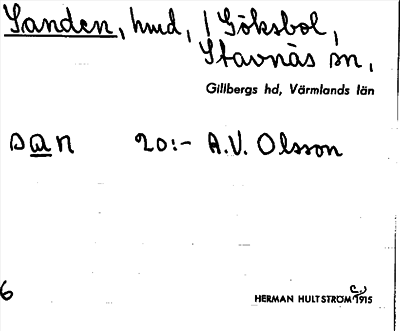 Sanden, hmd, / Göksbol,
Stavnäs sn,
Gillbergs hd, Värmlands län
san 20:- A.V. Olsson
6
HERMAN HULTSTRÖM 1915